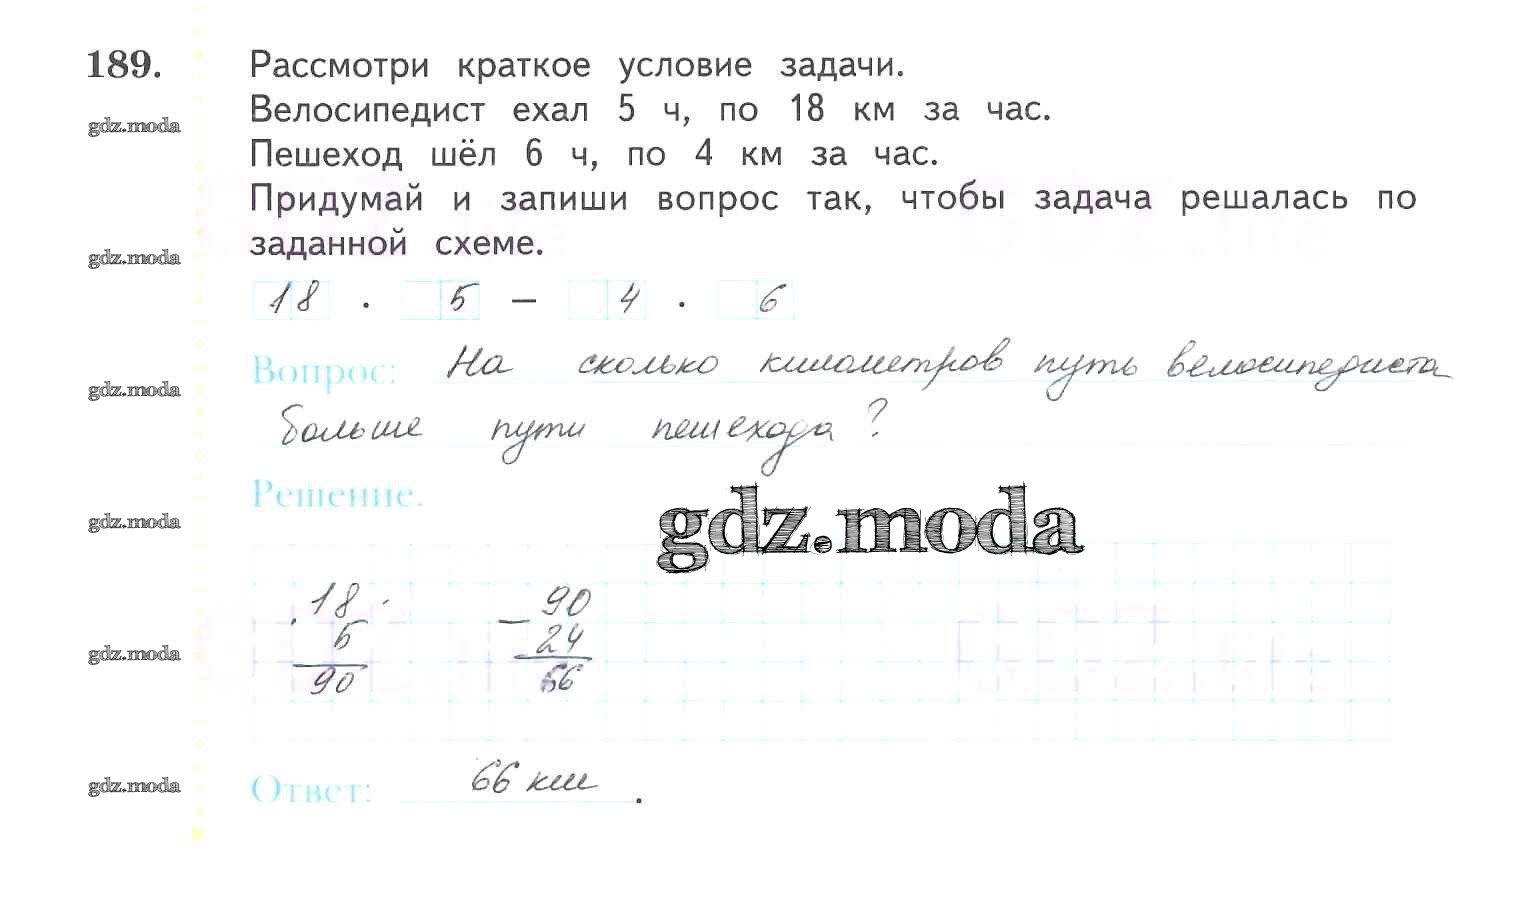 189. Рассмотри краткое условие задачи.
Велосипедист ехал 5 ч, по 18 км за час.
gdz.moda
Пешеход шёл 6 ч, по 4 км за час.
Придумай и запиши вопрос так, чтобы задача решалась по
заданной схеме.
gdz.moda
18 · 5 − 4 · 6
Вопрос: На сколько километров путь велосипедиста
gdz.moda
больше пути пешехода?
Решение.
gdz.moda
gdz.moda
18 90
· 5 − 24
gdz.moda
90 66
gdz.moda
Ответ: 66 км.